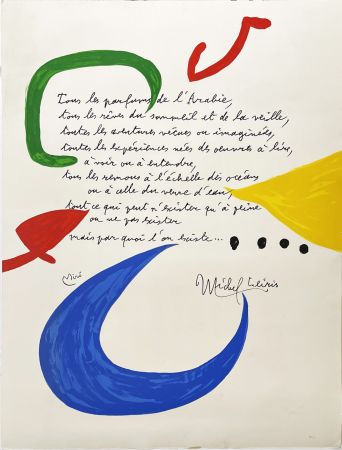 Tous les parfums de l'Arabie,
tous les rêves du sommeil et de la veille,
toutes les aventures vécues ou imaginées,
toutes les expériences nées des oeuvres à lire,
à voir ou à entendre,
tous les remous à l'échelle des océans
ou à celle du verre d'eau,
tout ce qui peut n'exister qu'à peine
ou ne pas exister
mais par quoi l'on existe...
Miró
Michel Leiris